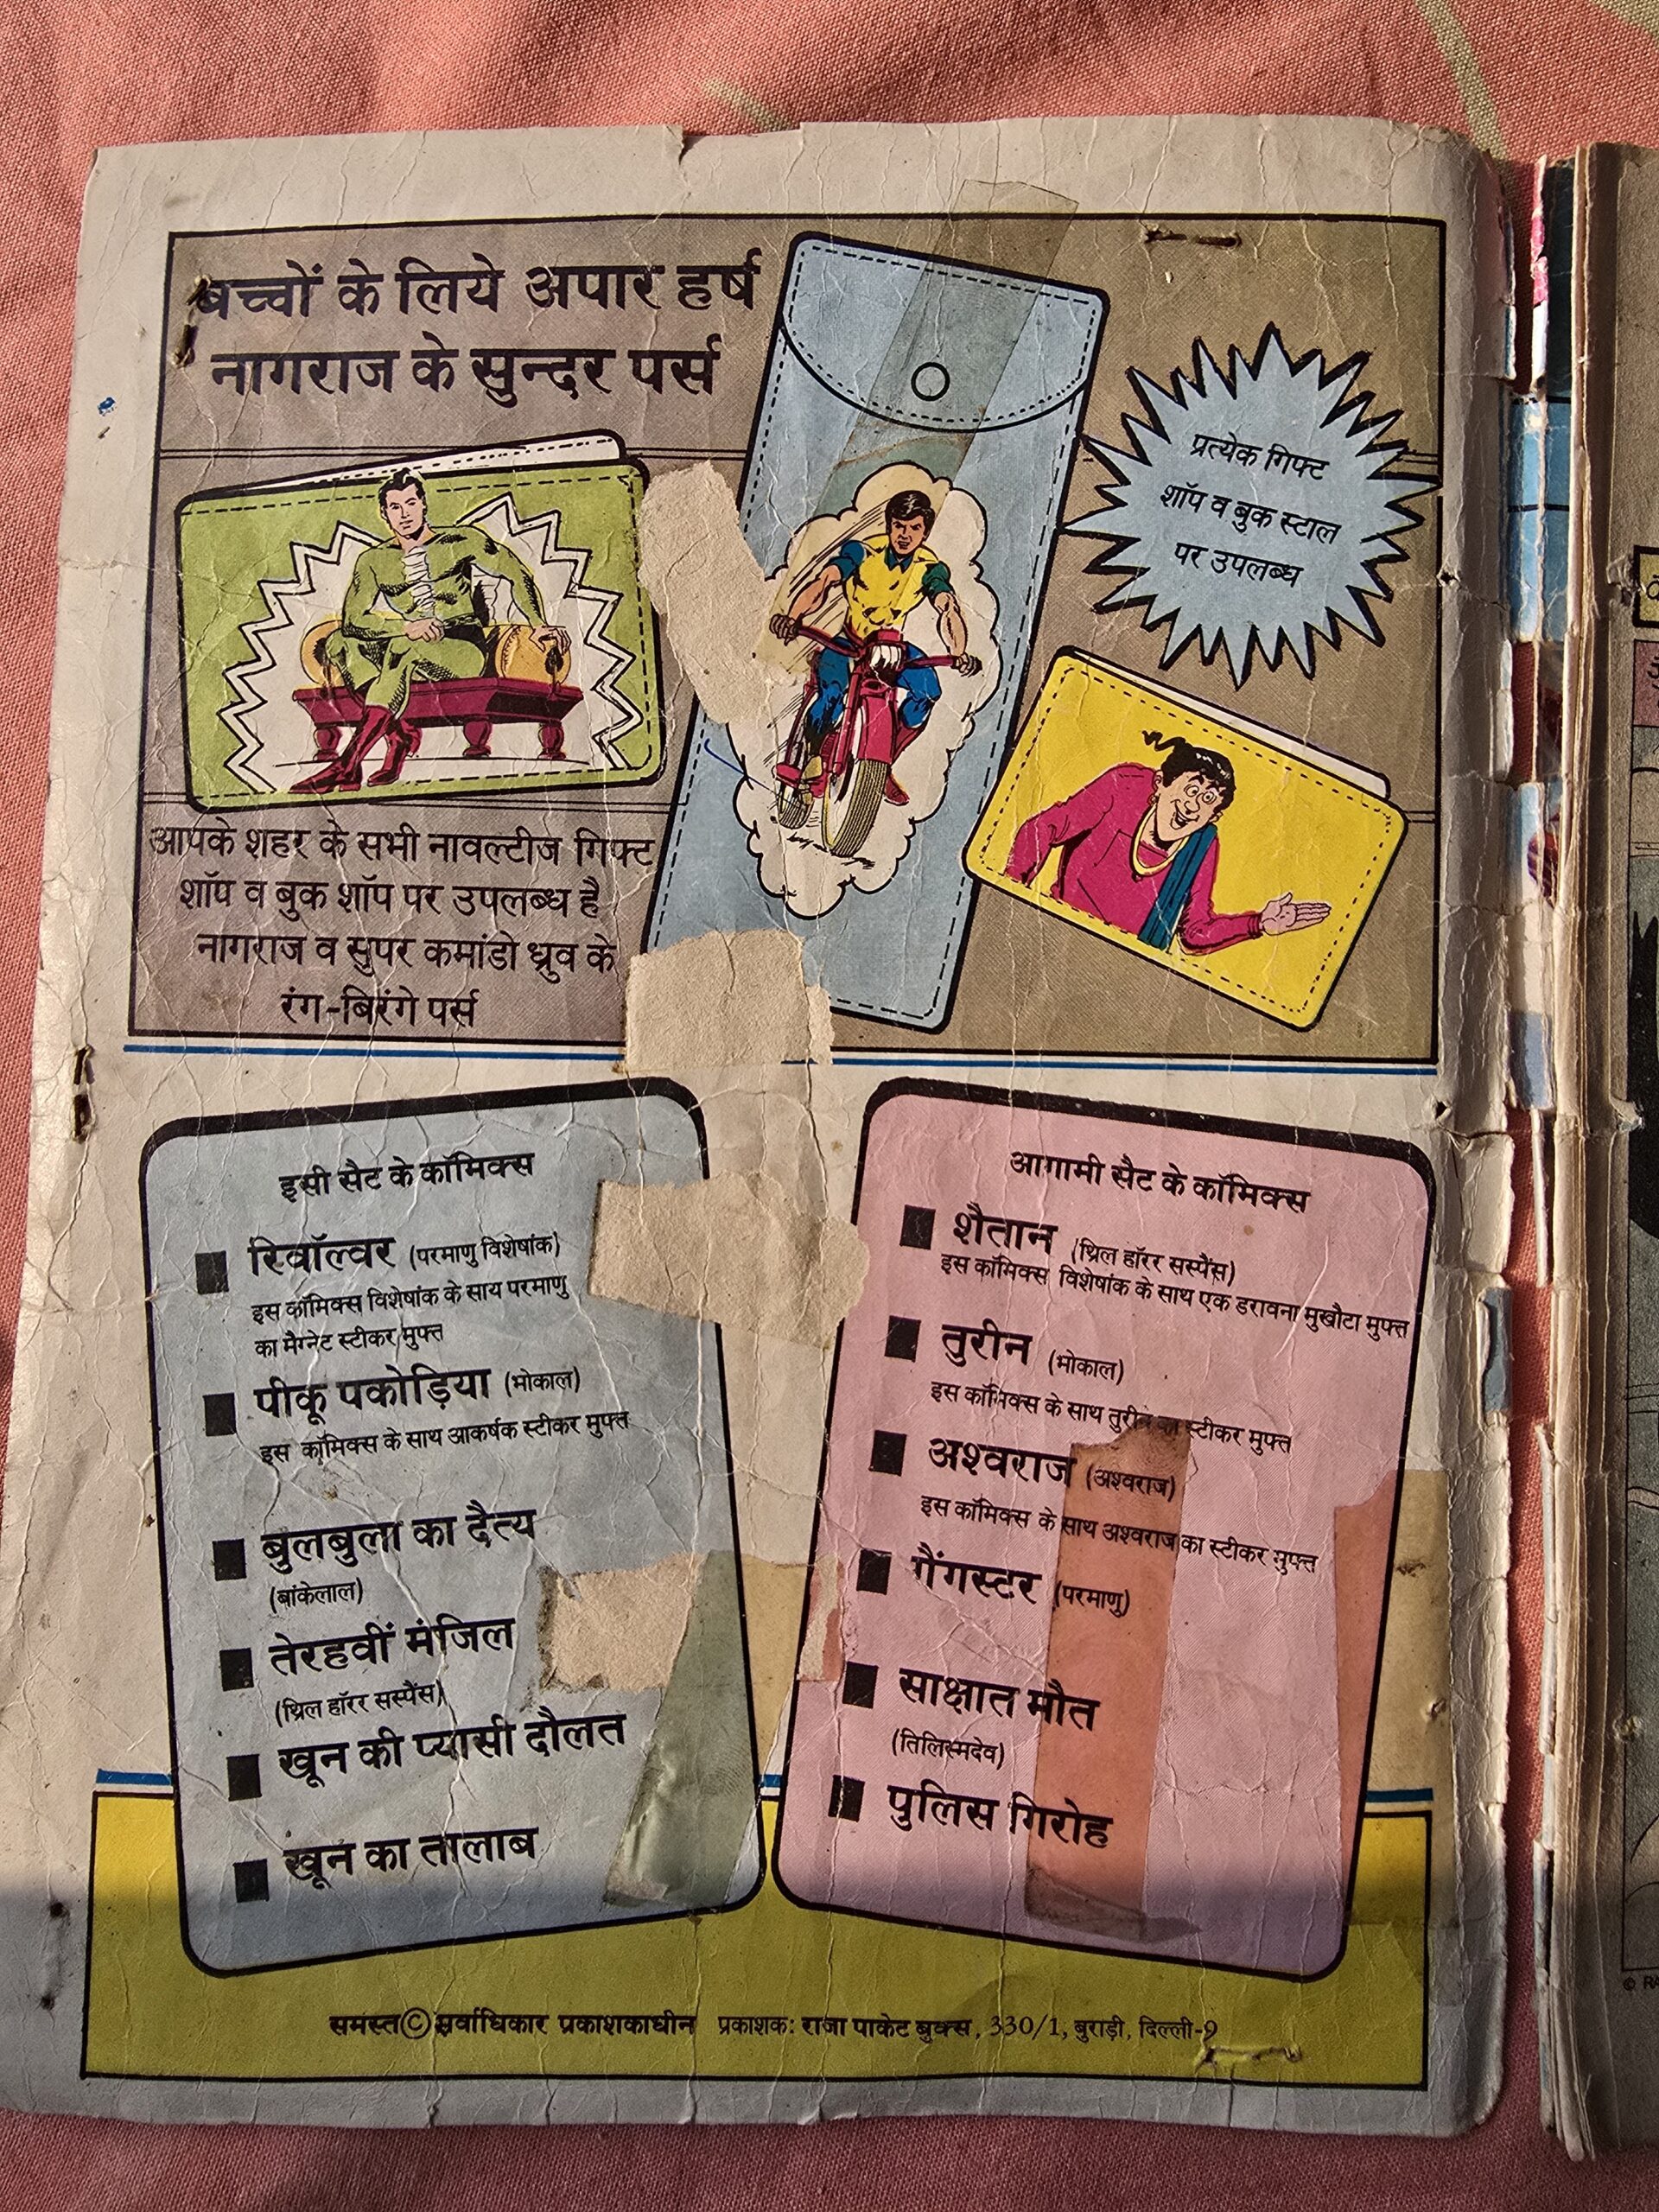 बच्चों के लिये अपार हर्ष
नागराज के सुन्दर पर्स
प्रत्येक गिफ्ट
शॉप व बुक स्टाल
पर उपलब्ध
आपके शहर के सभी नावल्टीज गिफ्ट
शॉप व बुक शॉप पर उपलब्ध है
नागराज व सुपर कमांडो ध्रुव के
रंग-बिरंगे पर्स
इसी सैट के कॉमिक्स
रिवॉल्वर (परमाणु विशेषांक)
इस कॉमिक्स विशेषांक के साथ परमाणु
का मैग्नेट स्टीकर मुफ्त
पीकू पकोड़िया (भोकाल)
इस कॉमिक्स के साथ आकर्षक स्टीकर मुफ्त
बुलबुला का दैत्य
(बांकेलाल)
तेरहवीं मंजिल
(थ्रिल हॉरर सस्पैंस)
खून की प्यासी दौलत
खून का तालाब
आगामी सैट के कॉमिक्स
शैतान (थ्रिल हॉरर सस्पैंस)
इस कॉमिक्स विशेषांक के साथ एक डरावना मुखौटा मुफ्त
तुरीन (भोकाल)
इस कॉमिक्स के साथ तुरीन का स्टीकर मुफ्त
अश्वराज (अश्वराज)
इस कॉमिक्स के साथ अश्वराज का स्टीकर मुफ्त
गैंगस्टर (परमाणु)
साक्षात मौत
(तिलिस्मदेव)
पुलिस गिरोह
समस्त © सर्वाधिकार प्रकाशकाधीन प्रकाशक: राजा पाकेट बुक्स, 330/1, बुराड़ी, दिल्ली-9